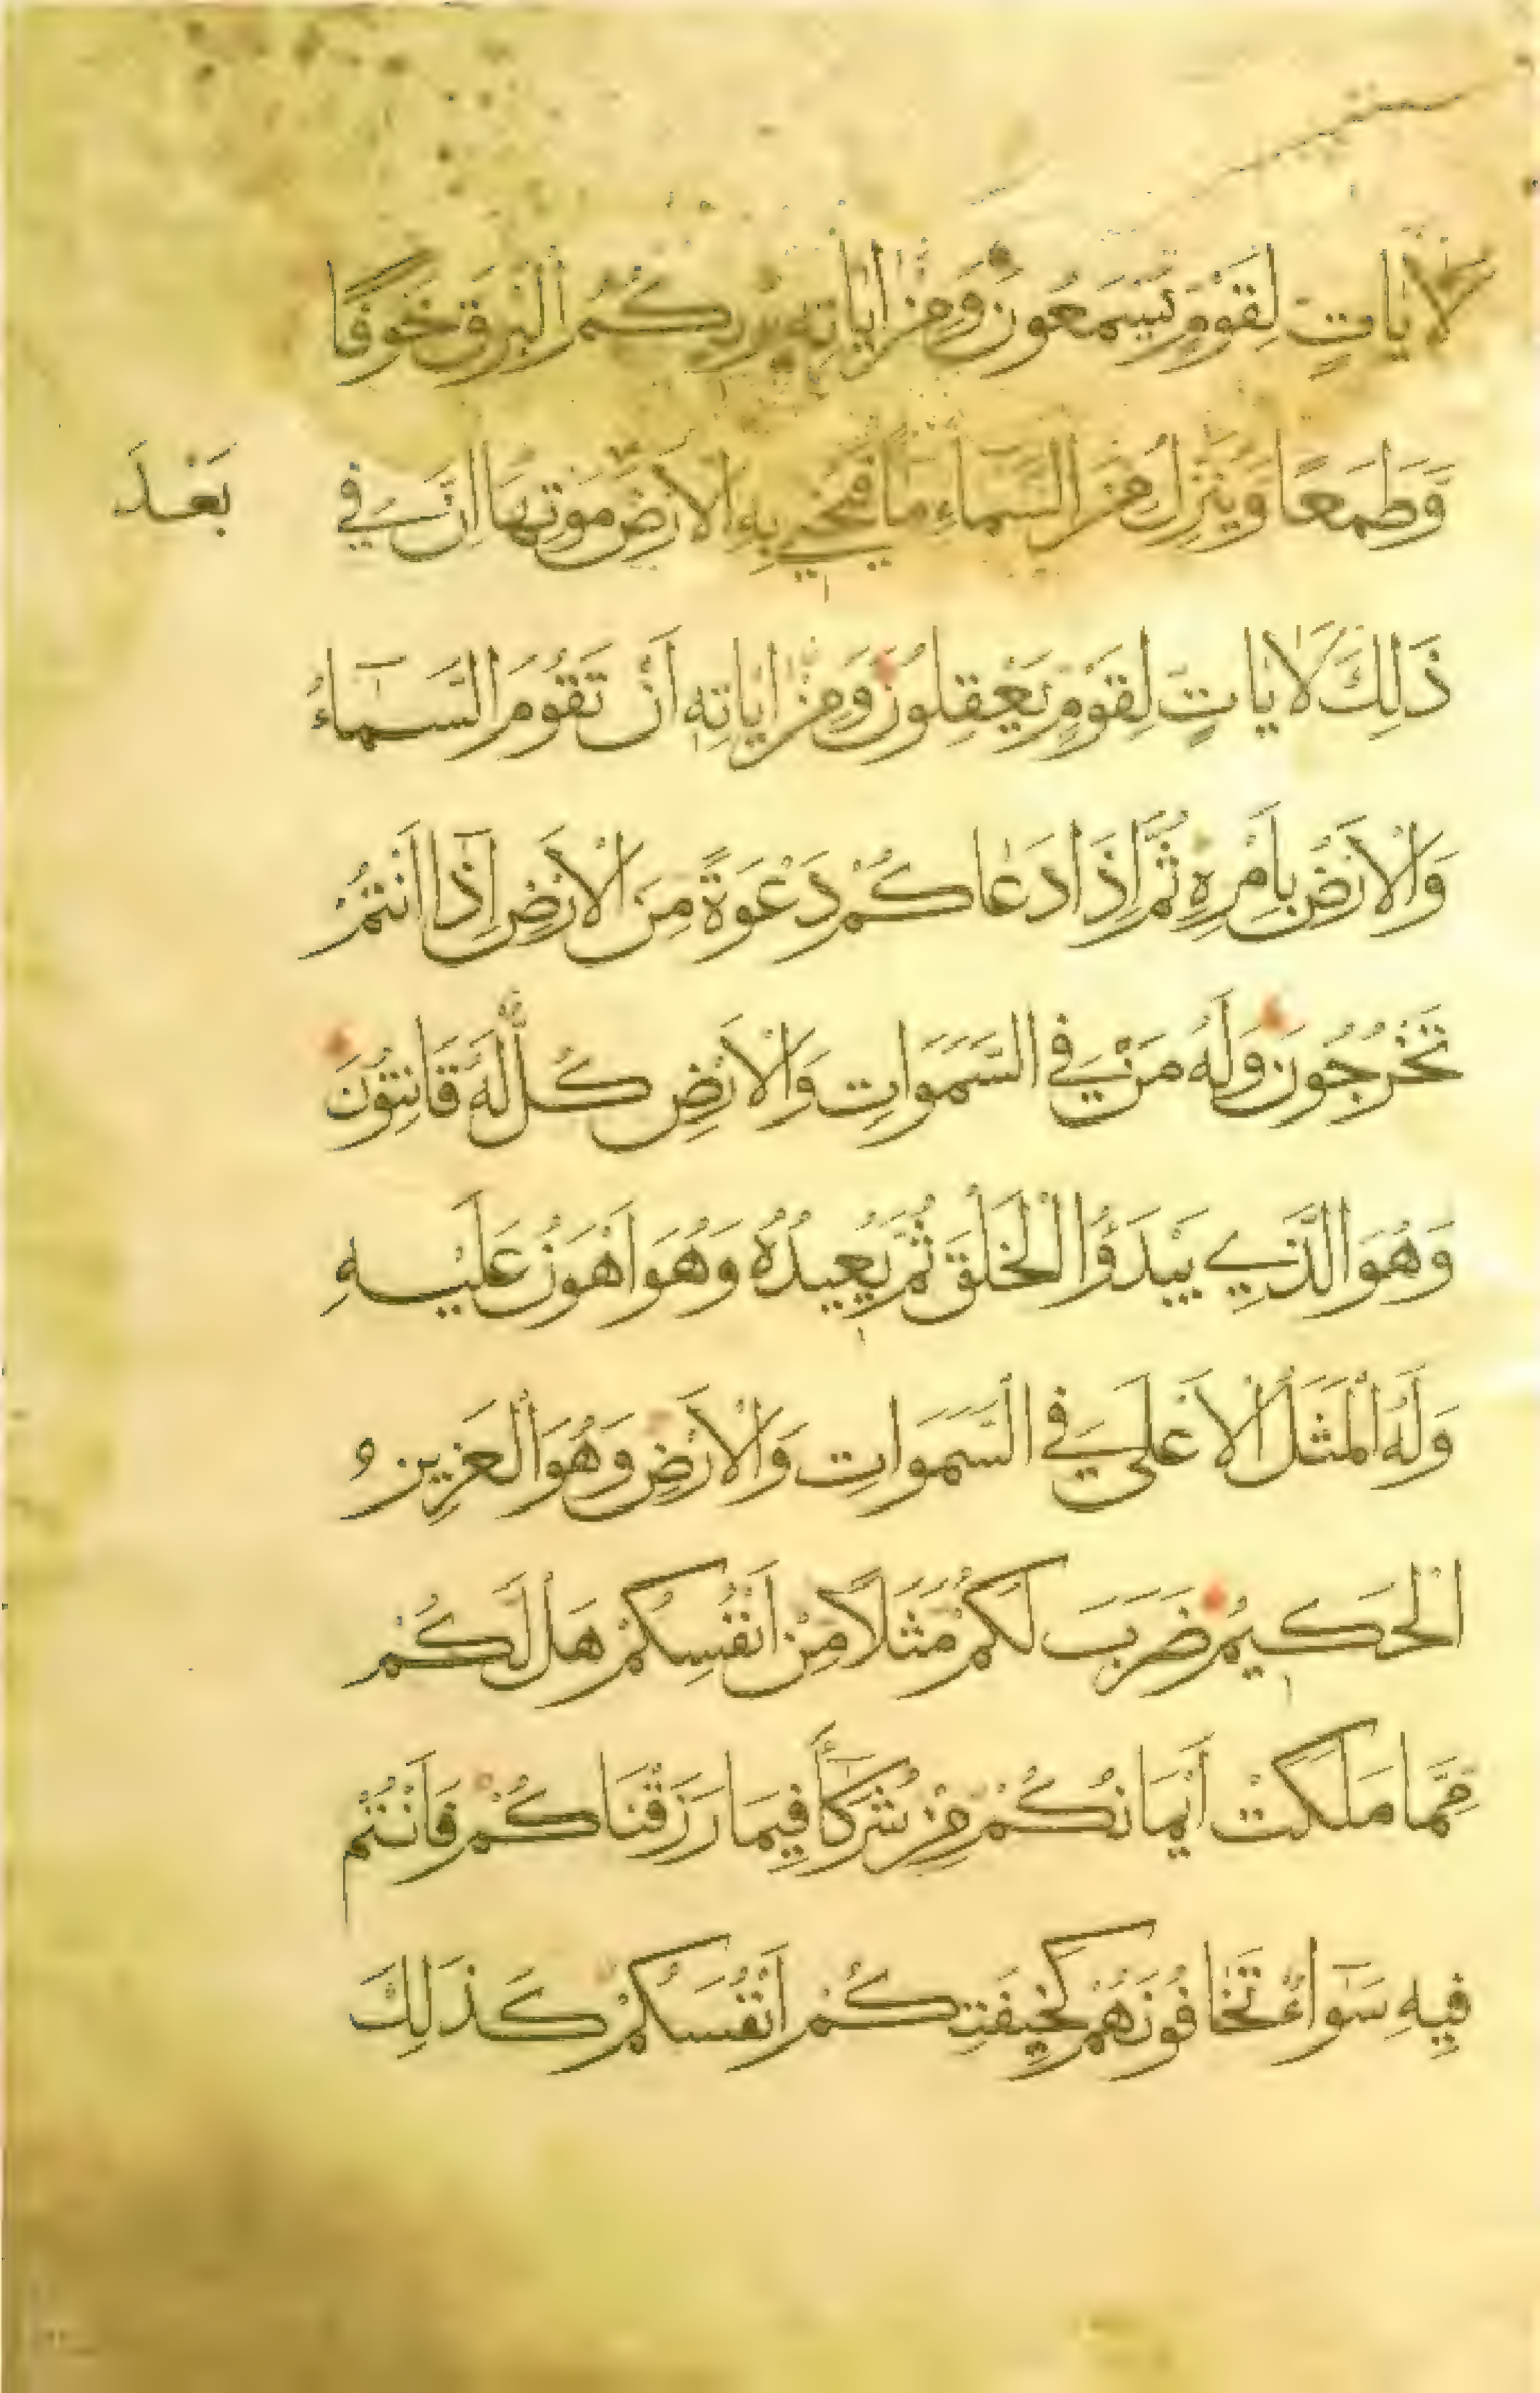 لَاٰيَاتٍ لِقَوْمٍ يَسْمَعُونَ وَمِنْ اٰيَاتِهٖ يُرِيكُمُ الْبَرْقَ خَوْفًا
وَّطَمَعًا وَيُنَزِّلُ مِنَ السَّمَاءِ مَاءً فَيُحْيِي بِهِ الْاَرْضَ مَوْتِهَا اِنَّ فِي
بَعْدَ
ذَلِكَ لَاٰيَاتٍ لِقَوْمٍ يَعْقِلُونَ وَمِنْ اٰيَاتِهٖ اَنْ تَقُومَ السَّمَاءُ
وَالْاَرْضُ بِاَمْرِهِ ثُمَّ اِذَا دَعَاكُمْ دَعْوَةً مِنَ الْاَرْضِ اِذَا اَنْتُمْ
تَخْرُجُونَ وَلَهُ مَنْ فِي السَّمَوَاتِ وَالْاَرْضِ كُلٌّ لَهُ قَانِتُونَ
وَهُوَ الَّذِي يَبْدَؤُا الْخَلْقَ ثُمَّ يُعِيدُهُ وَهُوَ اَهْوَنُ عَلَيْهِ
وَلَهُ الْمَثَلُ الْاَعْلَى فِي السَّمَوَاتِ وَالْاَرْضِ وَهُوَ الْعَزِيزُ
الْحَكِيمُ ضَرَبَ لَكُمْ مَثَلًا مِنْ اَنْفُسِكُمْ هَلْ لَكُمْ
مِمَّا مَلَكَتْ اَيْمَانُكُمْ مِنْ شُرَكَاءَ فِيمَا رَزَقْنَاكُمْ فَاَنْتُمْ
فِيهِ سَوَاءٌ تَخَافُونَهُمْ كَخِيفَتِكُمْ اَنْفُسَكُمْ كَذَلِكَ